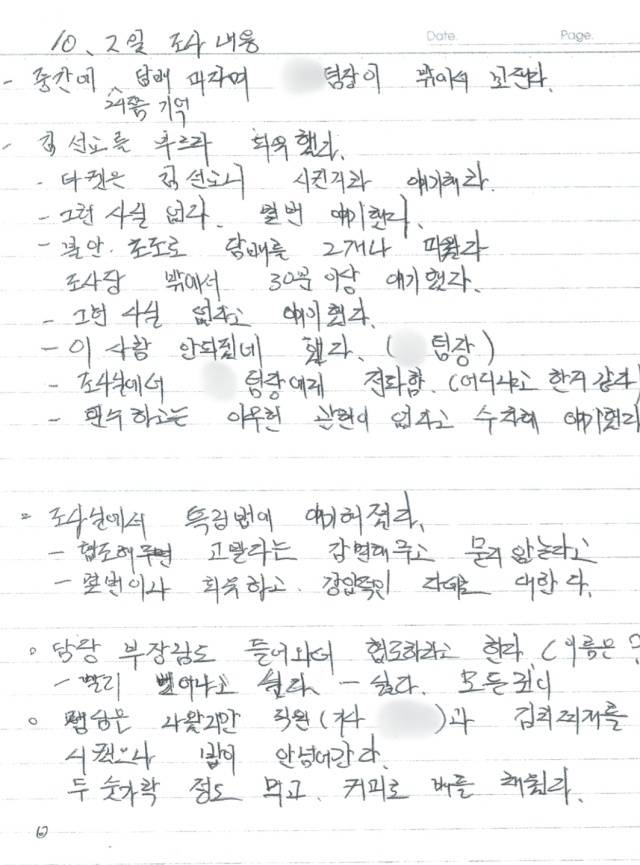 Date. Page.
10. 2일 조사 내용
- 중간에 담배 피자며 팀장이 밖에서 꼬신다.
24쯤 기억
- 김선교를 부르라 회유했다.
- 타켓은 김선교니 시킨거라 얘기해라.
- 그런 사실 없다. 몇번 얘기했다.
- 불안. 초조로 담배를 2개나 피웠다
조사장 밖에서 30분 이상 얘기했다.
- 그런 사실 없다고 얘기했다.
- 이 사람 안되겠네 했다. ( 팀장)
- 조사실에서 팀장에게 전화함. (어디냐고 한거 같다)
- 군수하고는 아무런 관련이 없다고 수차례 얘기했다
= 조사실에서 특검법에 얘기해줬다.
- 협조해주면 고발자는 감면해주고 묻지 않는다고
- 몇번이나 회유하고. 강압적인 태도로 대한다.
○ 담당 부장님도 들어와서 협조하라고 한다. (이름은?
- 빨리 벗어나고 싶다 - 싫다. 모든것이
○ 점심은 나왔지만 직원( )과 김치찌개를
시켰으나 밥이 안넘어간다.
두 숟가락 정도 먹고. 커피로 배를 채웠다.